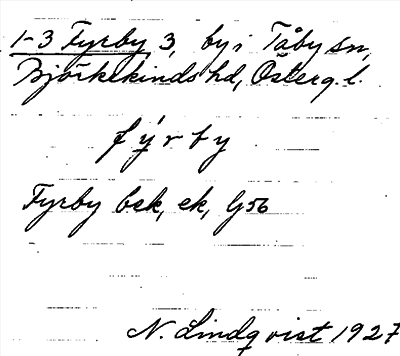 1-3 Fyrby 3, by i Tåby sn,
Björkekinds hd, Österg. l.
fýrby
Fyrby bek, ek, G56
N. Lindqvist 1927